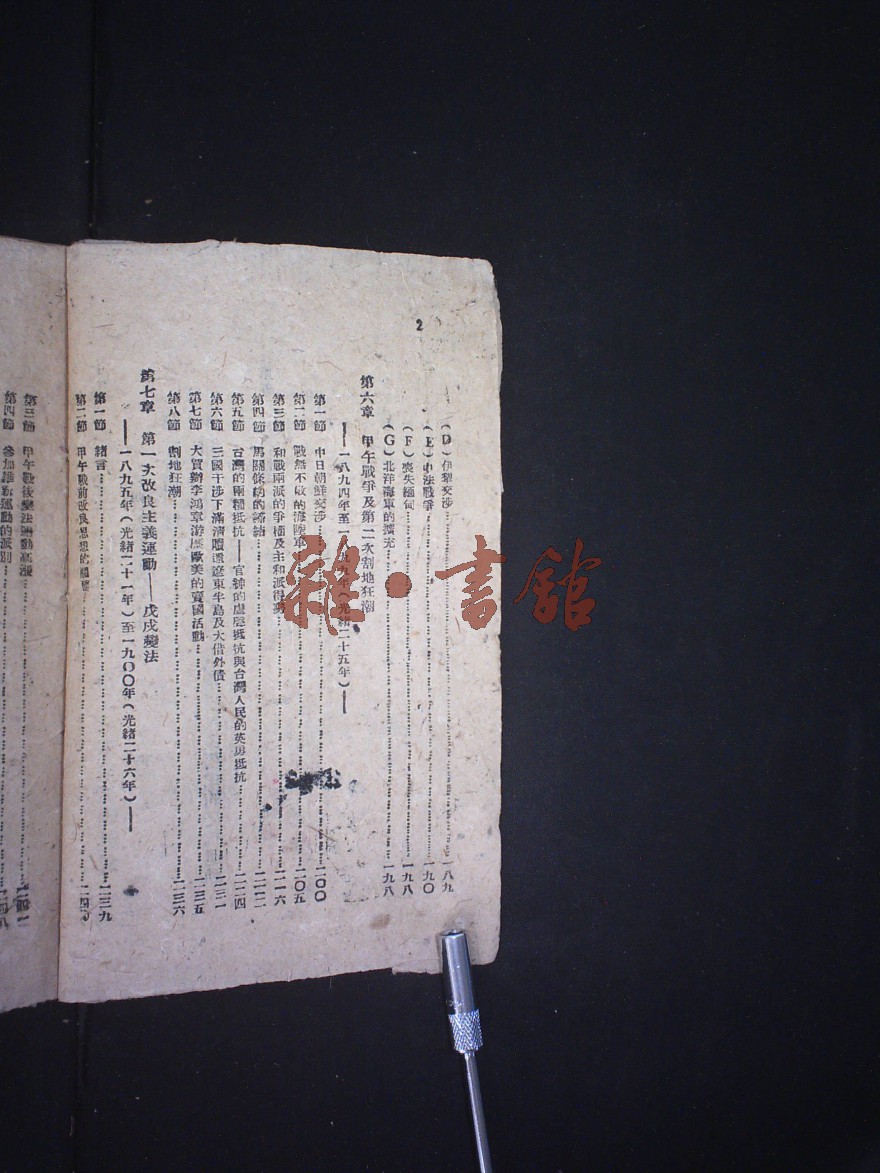 2
(D)伊犂交涉……一八九
(E)中法戰爭……一九〇
(F)喪失緬甸……一九八
(G)北洋海軍的擴充……一九八
第六章 甲午戰爭及第二次割地狂潮
——一八九四年至一八九九年(光緒二十五年)——
第一節 中日朝鮮交涉……二〇〇
第二節 戰無不敗的海陸軍……二〇五
第三節 和戰兩派的爭權及主和派得勢……二一六
第四節 馬關條約的締結……二二二
第五節 台灣的兩種抵抗——官紳的虛懸抵抗與台灣人民的英勇抵抗……二二四
第六節 三國干涉下滿清贖還遼東半島及大借外債……二三一
第七節 大買辦李鴻章游歷歐美的賣國活動……二三五
第八節 割地狂潮……二三六
第七章 第一次改良主義運動——戊戌變法
——一八九五年(光緒二十一年)至一九〇〇年(光緒二十六年)——
第一節 緒言……二三九
第二節 甲午戰前改良思想的醞釀……二四
第三節 甲午戰後變法運動
第四節 參加維新運動的派別
雜·書館